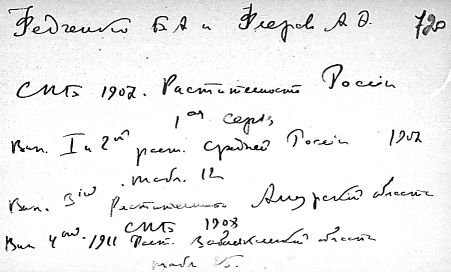 Федченко Б А и Флеров А Ф. 720
СПБ 1907. Растительность России
1ая серия
Вып. I и 2ой раст. Средней России 1907
табл. 12
Вып. 3ій Растительность Амурской области
СПБ 1908
Вып 4ый 1911 Раст. Забайкальской области
табл